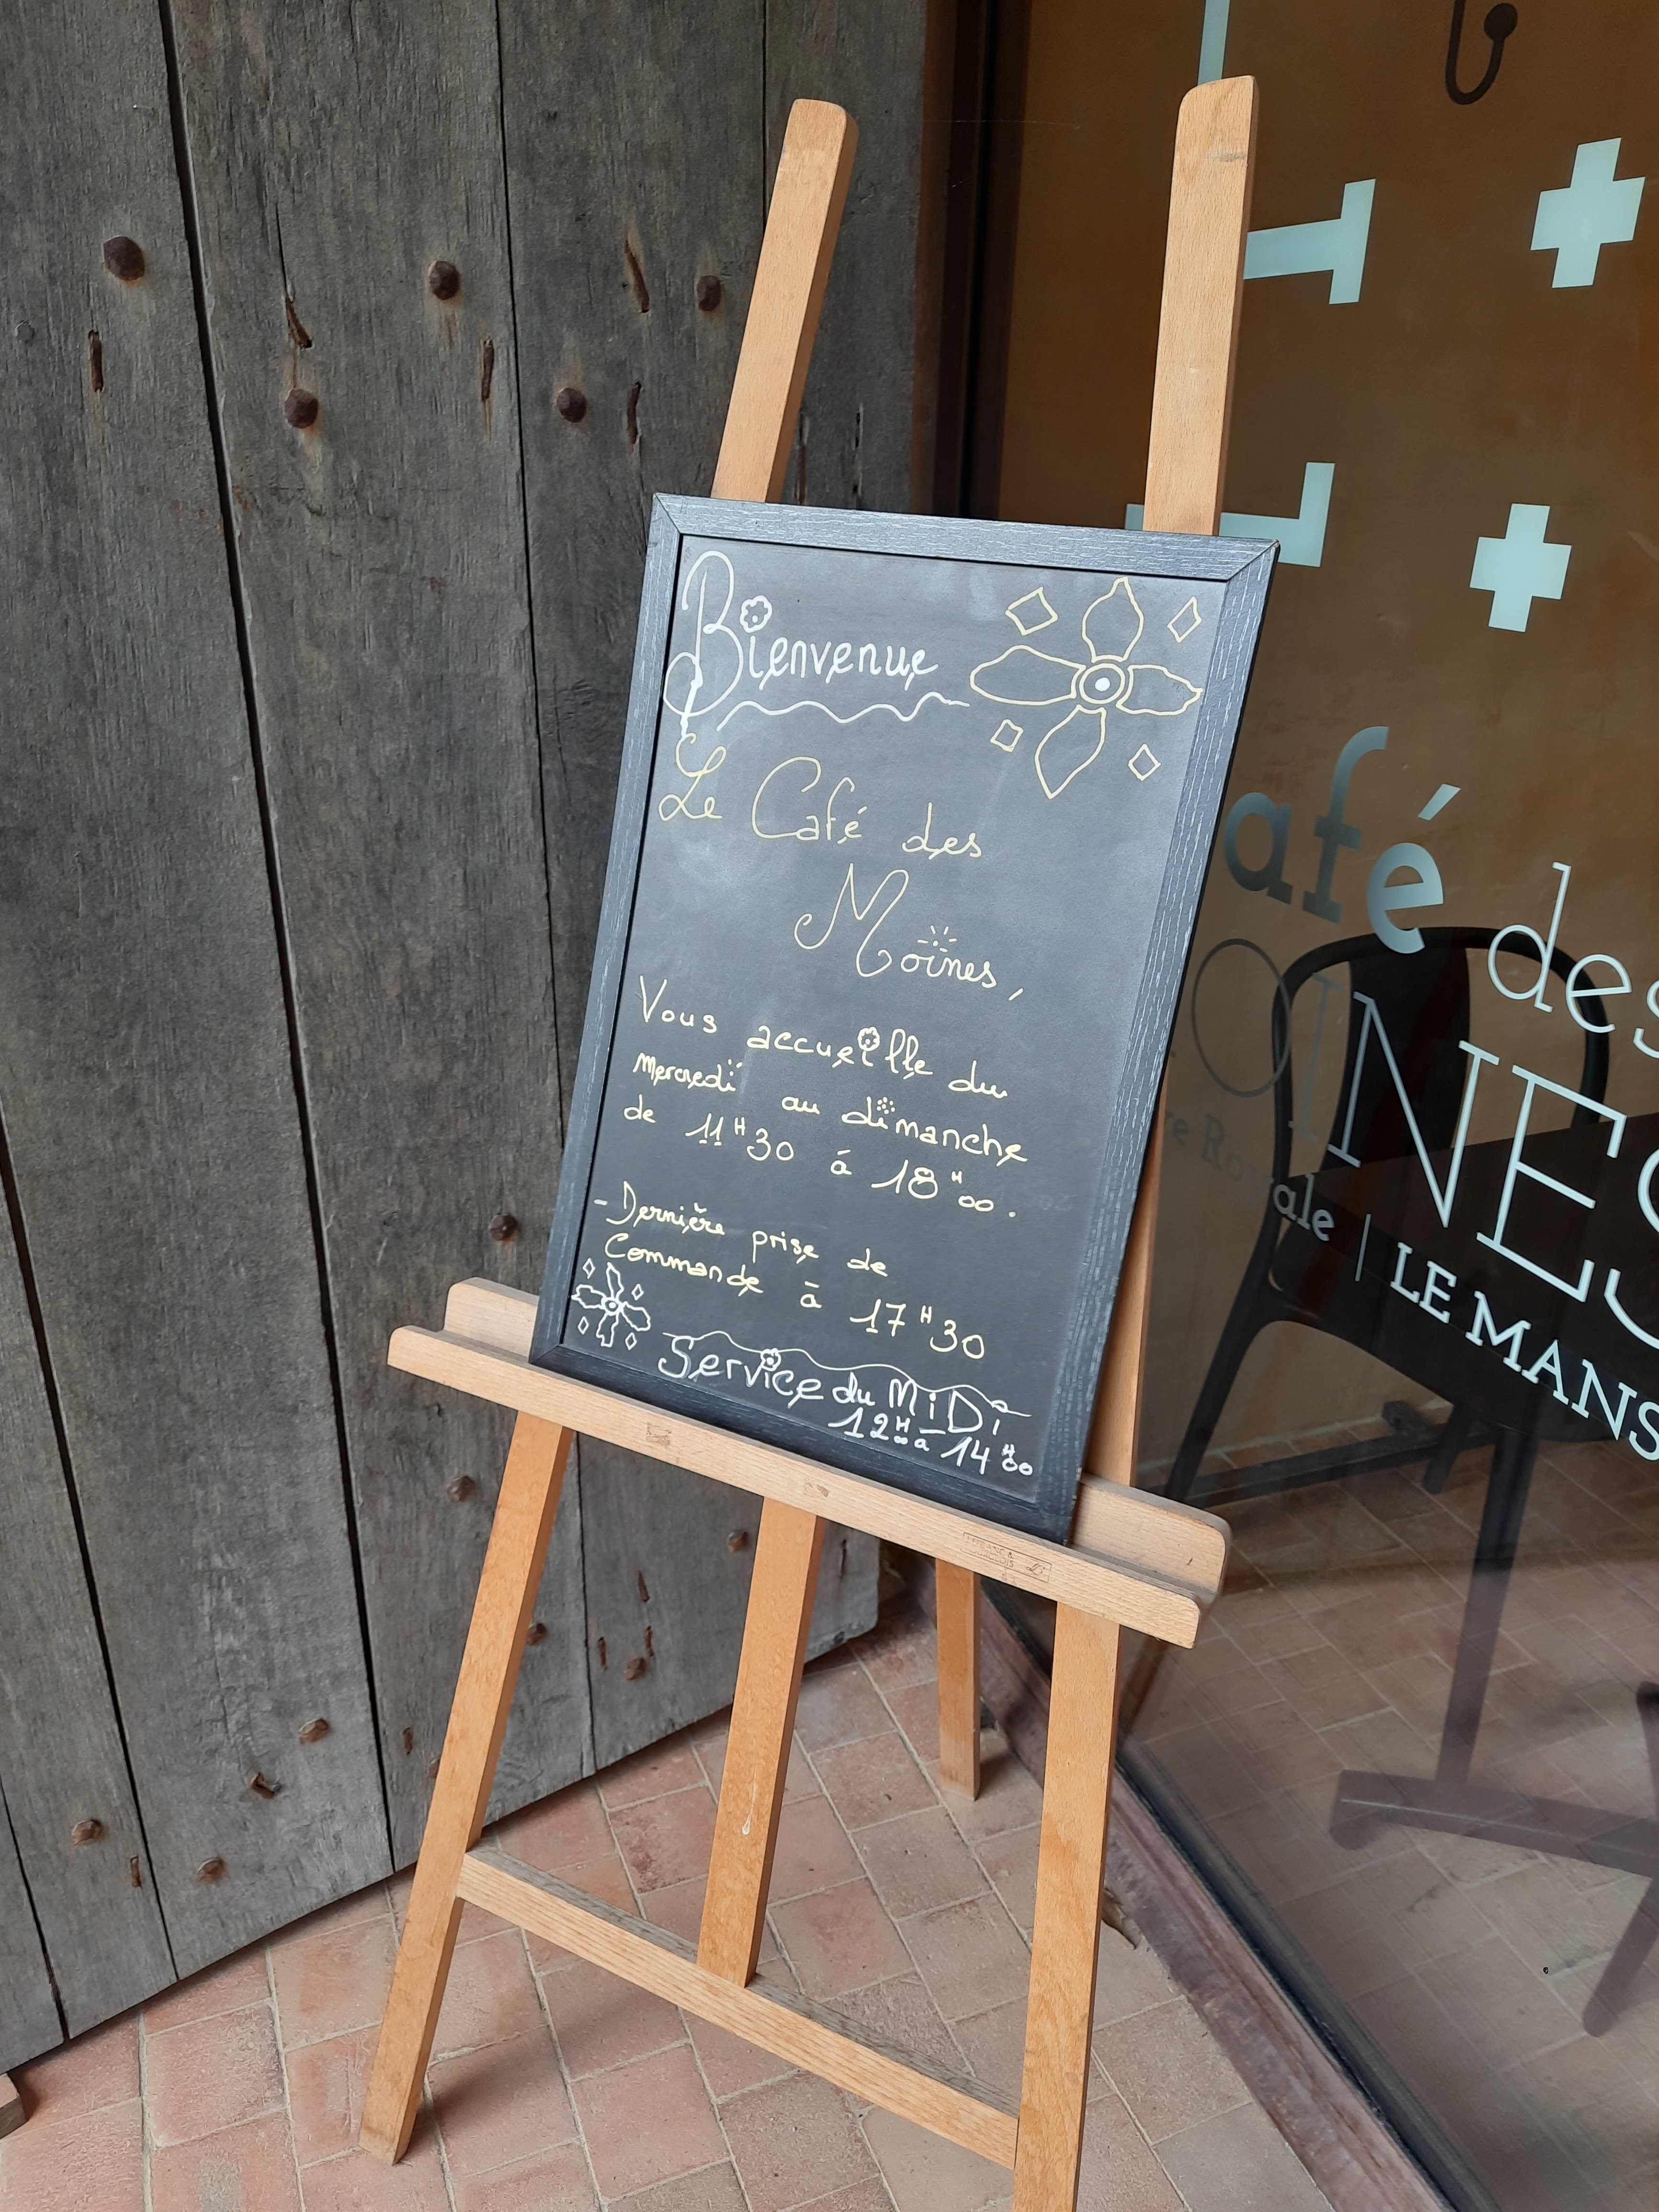 Bienvenue
Le Café des
Moines,
Vous accueille du
mercredi au dimanche
de 11H30 à 18H00.
- Dernière prise de
Commande à 17H30
Service du MiDi
12H00 à 14H00
afé des
OINES
Royale | LE MANS